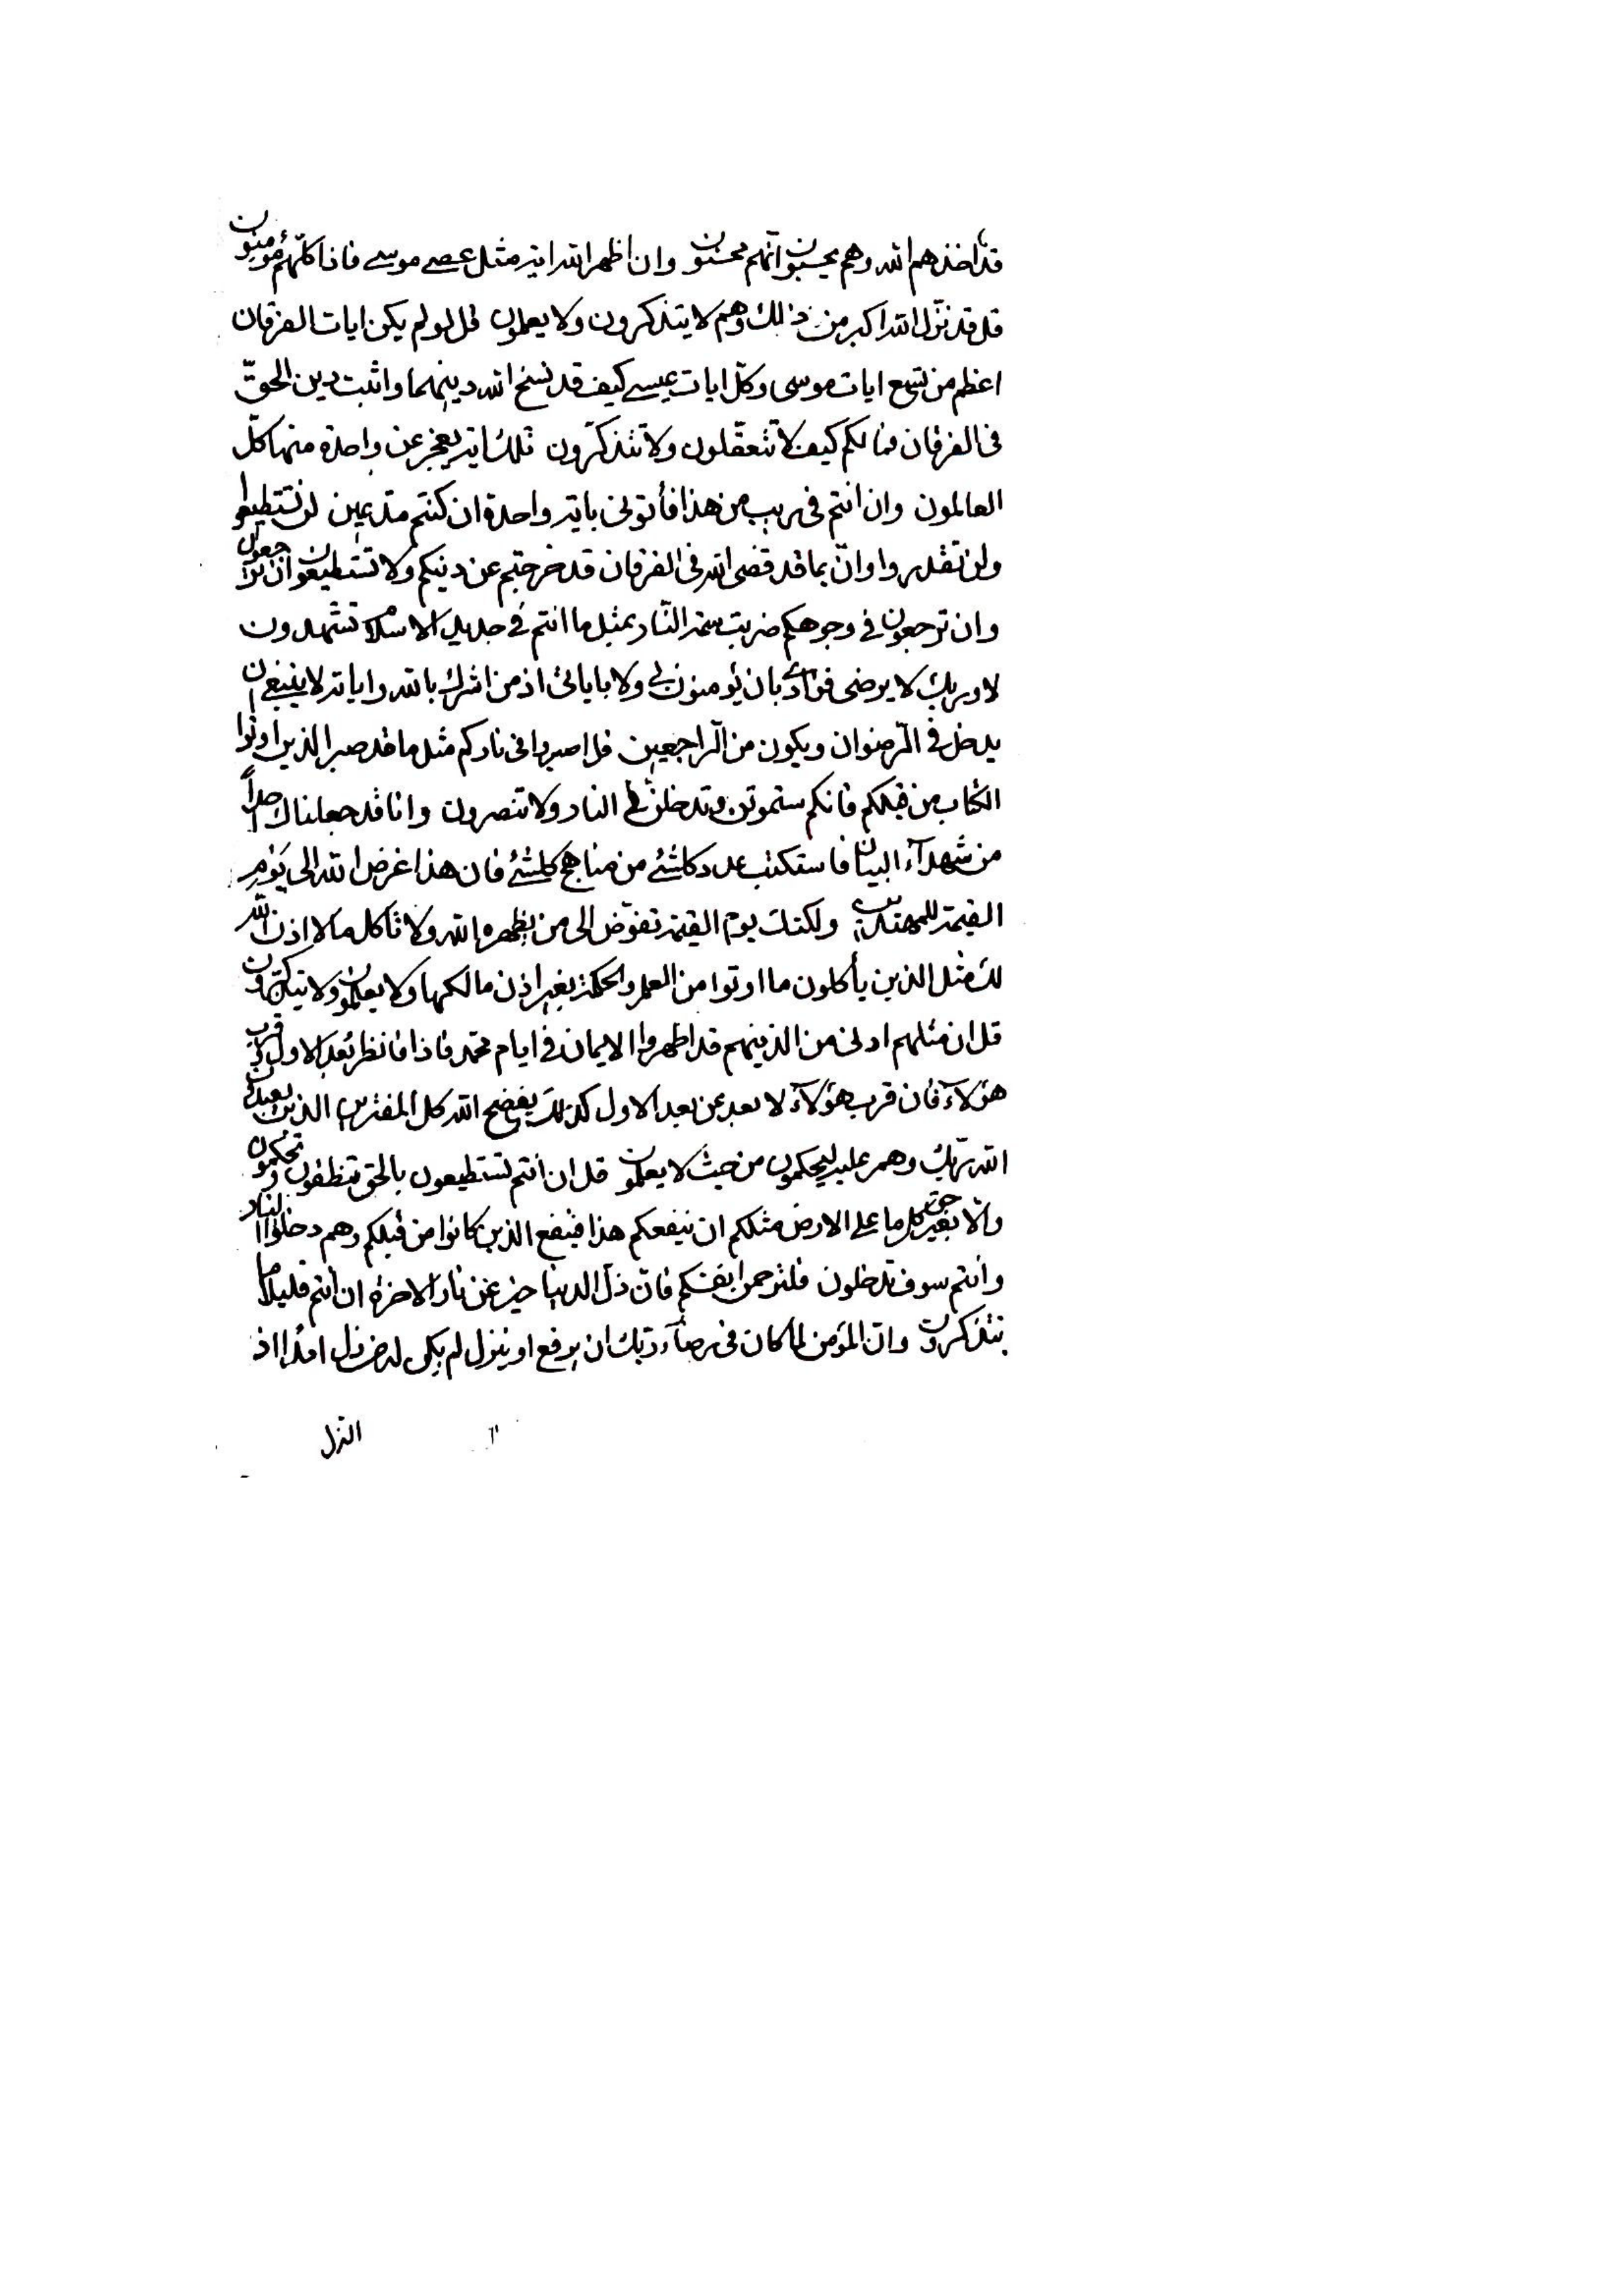 قد اخذهم الله وهم يحسبون انهم محسنون وان اظهر الله اية مثل عصى موسى فاذا كلهم مؤمنون
قل قد نزل الله اكبر من ذلك وهم لا يتذكرون ولا يعملون قل لو لم يكن ايات الفرقان
اعظم من تسع ايات موسى وكل ايات عيسى كيف قد نسخ الله دينهما واثبت دين الحق
فى الفرقان فما لكم كيف لا تتعقلون ولا تتذكرون تلك اية يعجز عن واحدة منها كل
العالمون وان انتم فى ريب من هذا فأتونى باية واحدة ان كنتم مدعين لن تستطيعوا
ولن تقدروا وان بما قد قضى الله فى الفرقان قد خرجتم عن دينكم ولا تستطيعون ان ترجعون
وان ترجعون فى وجوهكم ضربت سمة النار بمثل ما انتم فى جديد الاسلام تشهدون
لا وربك لا يرضى فؤادى بان يؤمنون بى ولا باياتى اذ من اشرك بالله واياته لا ينبغى ان
يدخل فى الرضوان ويكون من الراجعين قل اصبروا فى ناركم مثل ما قد صبر الذين اوتوا
الكتاب من قبلكم فانكم ستموتن وتدخلن فى النار ولا تنصرون وانا قد جعلناك احداً
من شهدآء البيان فاستكتب عدد كلشئ من مناهج كلشئ فان هذا غرض الله الى يوم
القيمة للمهتدين ولكنك يوم القيمة تفوض الى من يظهره الله ولا تأكل ما لا اذن الله
لك مثل الذين يأكلون ما اوتوا من العلم والحكمة بغير اذن مالكها ولا يعلمون ولا يتذكرون
قل ان مثلهم ادنى من الذينهم قد اظهروا الايمان فى ايام محمد فاذا فانظر بعد الاول قرب
هؤلآء فان قرب هؤلآء لا بعد عن بعد الاول كذلك يفضح الله كل المفترين الذين يعبدون
الله ربك وهم عليه ليحكمون من حيث لا يعلمون قل ان انتم تستطيعون بالحق تنطقون وتحكمون
والا بغير حق كل ما على الارض مثلكم ان ينفعكم هذا فينفع الذين كانوا من قبلكم وهم دخلوا النار
وانتم سوف تدخلون فلترحمن انفسكم فان ذل الدنيا خير عن نار الاخرة ان انتم قليلا ما
تتذكرون وان المؤمن لما كان فى رضآء ربك ان يرفع او ينزل لم يكن له من ذل ابدا اذ
الذل